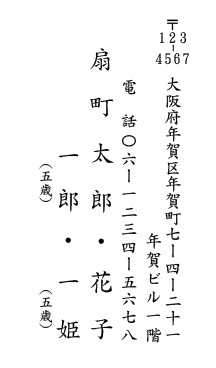 〒
123
-
4567
大阪府年賀区年賀町七ー四ー二十一
年賀ビル一階
電話〇六ー一二三四ー五六七八
扇町太郎・花子
一郎・一姫
（五歳）（五歳）